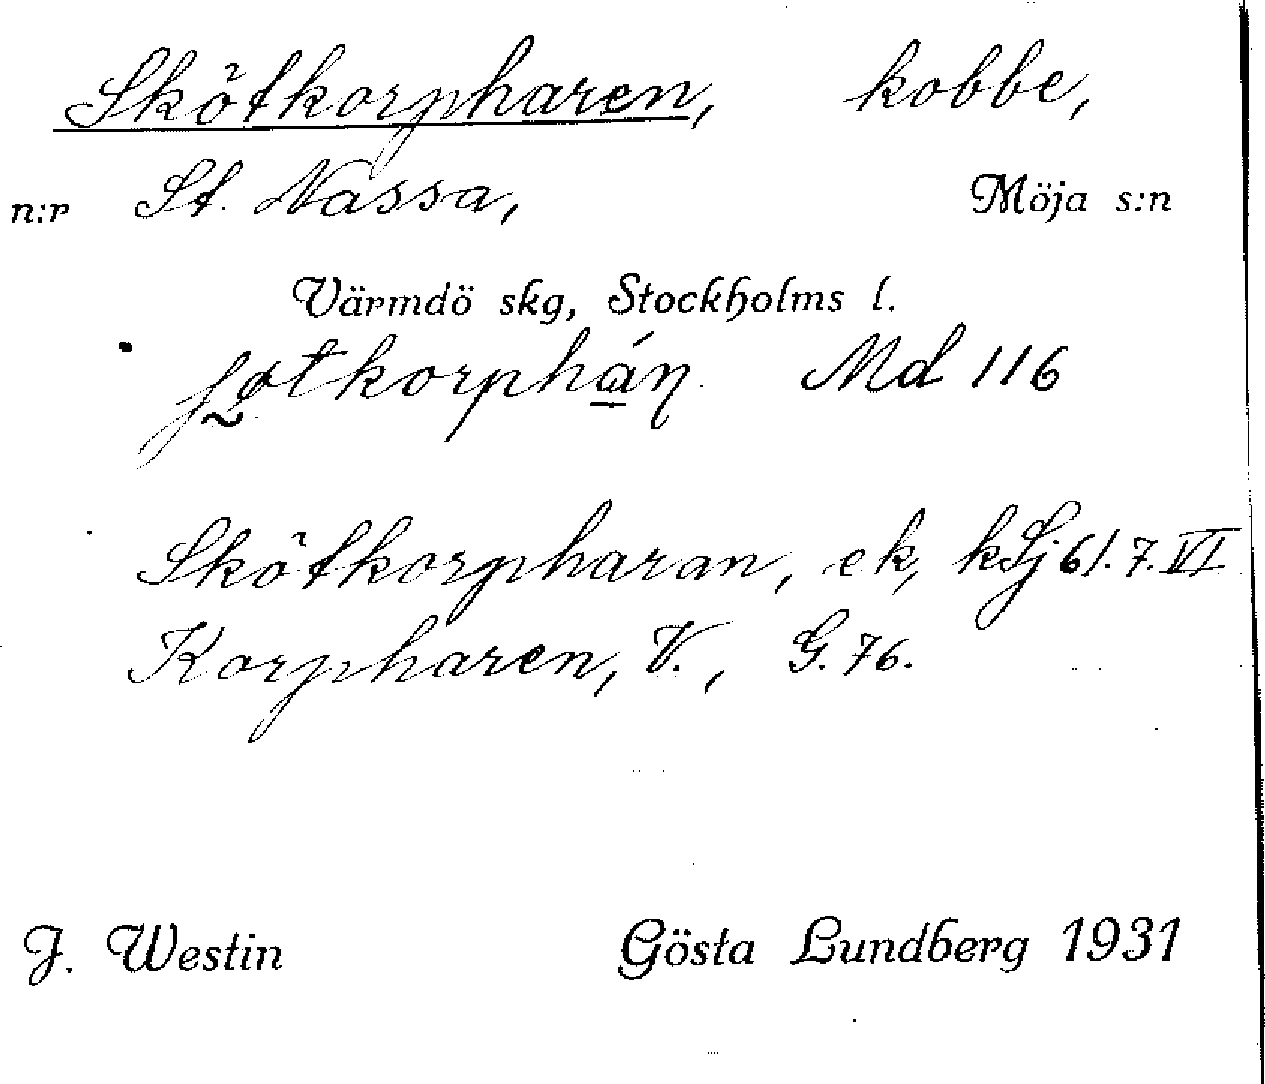 Skötkorpharen, kobbe,
n:r St. Nassa, Möja s:n
Värmdö skg, Stockholms l.
Md 116
Skötkorpharan, ek, kSj 61. 7. VI
Korpharen, V., G. 76.
J. Westin Gösta Lundberg 1931